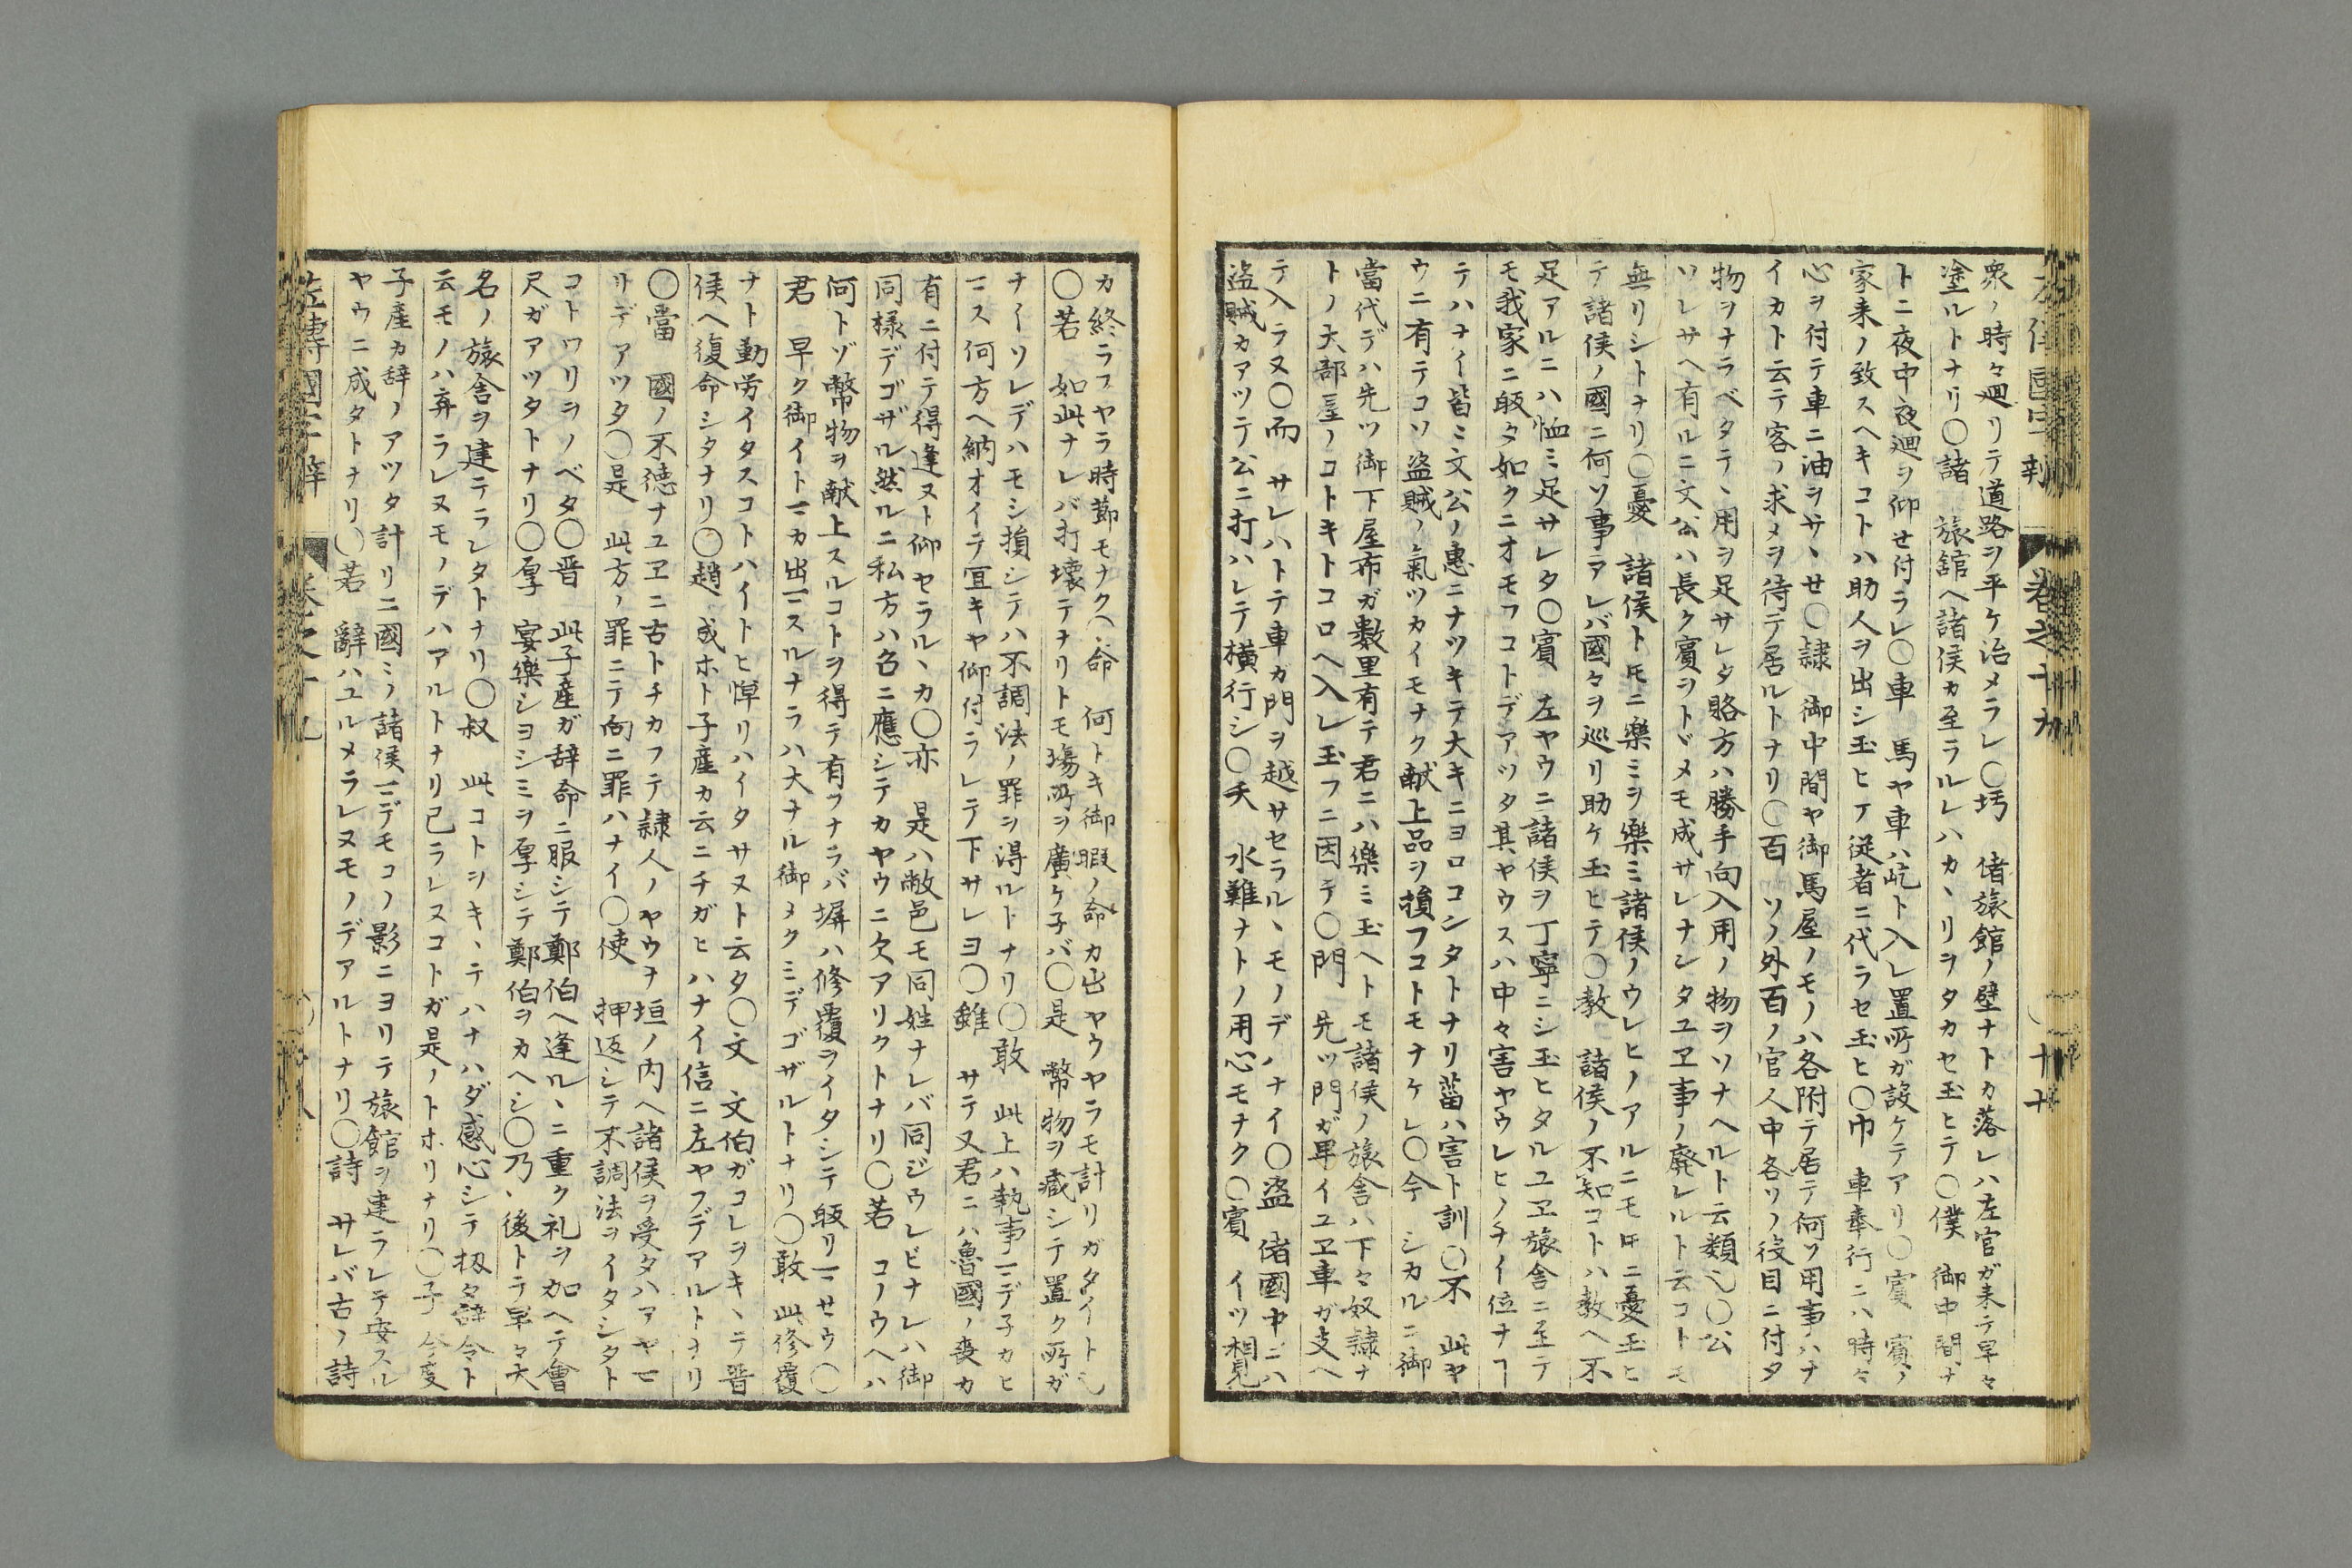 左傳國字辨 卷之十九 〇十七
衆ノ時々廻リテ道路ヲ平ケ治メラレ〇圬 偖旅館ノ壁ナトカ落レハ左官ガ来テ早々
塗ルトナリ〇諸 旅舘ヘ諸侯カ至ラルレハカヽリヲタカセ玉ヒテ〇僕 御中間ナ
トニ夜中夜廻ヲ仰せ付ラレ〇車 馬ヤ車ハ屹ト入レ置所ガ設ケテアリ〇賓 賓ノ
家来ノ致スヘキコトハ助人ヲ出シ玉ヒテ従者ニ代ラセ玉ヒ〇巾 車奉行ニハ時々
心ヲ付テ車ニ油ヲサヽせ〇隷 御中間ヤ御馬屋ノモノハ各附テ居テ何ソ用事ハナ
イカト云テ客ノ求メヲ待テ居ルトナリ〇百 ソノ外百ノ官人中各ソノ役目ニ付タ
物ヲナラベタテヽ用ヲ足サレタ賂方ハ勝手向入用ノ物ヲソナヘルト云類也〇公
ソレサヘ有ルニ文公ハ長ク賓ヲトヾメモ成サレナンタユヱ事ノ廃レルト云コトモ
無リシトナリ〇憂 諸侯トモニ楽ミヲ樂ミ諸侯ノウレヒノアルニモ𪜈ニ憂玉ヒ
テ諸侯ノ國ニ何ソ事アレバ國々ヲ巡リ助ケ玉ヒテ〇教 諸侯ノ不知コトハ教ヘ不
足アルニハ恤ミ足サレタ〇賓 左ヤウニ諸侯ヲ丁寧ニシ玉ヒタルユヱ旅舎ニ至テ
モ我家ニ皈タ如クニオモフコトデアツタ其ヤウスハ中々害ヤウレヒノナイ位ナヿ
テハナイ皆ミ文公ノ惠ニナツキテ大キニヨロコンタトナリ菑ハ害ト訓〇不 此ヤ
ウニ有テコソ盗賊ノ氣ツカイモナク献上品ヲ損フコトモナケレ〇今 シカルニ御
當代デハ先ツ御下屋布ガ数里有テ君ニハ樂ミ玉ヘトモ諸侯ノ旅舎ハ下々奴隷ナ
トノ大部屋ノコトキトコロヘ入レ玉フニ因テ〇門 先ツ門ガ卑イユヱ車ガ支ヘ
テ入ラヌ〇而 サレハトテ車カ門ヲ越サセラルヽモノデハナイ〇盗 偖國中ニハ
盗賊カアツテ公ニ打ハレテ横行シ〇夭 水難ナトノ用心モナク〇賓 イツ相見
カ終ラフヤラ時節モナク〇命 何トキ御暇ノ命カ出ヤウヤラモ計リガタイト也
〇若 如此ナレバ打壊テナリトモ塲所ヲ廣ケ子バ〇是 幣物ヲ藏シテ置ク所ガ
ナイソレデハモシ損シテハ不調法ノ罪ヲ得ルトナリ〇敢 此上ハ執事ニデ子カヒ
マス何方ヘ納オイテ冝キヤ仰付ラレテ下サレヨ〇雖 サテ又君ニハ魯國ノ喪カ
有ニ付テ得逢ヌト仰セラルヽカ〇亦 是ハ敝邑モ同姓ナレバ同ジウレビナレハ御
同様デゴザル然ルニ私方ハ召ニ應シテカヤウニ欠アリクトナリ〇若 コノウヘハ
何トゾ幣物ヲ献上スルコトヲ得テ有フナラバ塀ハ修覆ヲイタシテ皈リマせウ〇
君 早ク御イトマカ出マスルナラハ大ナル御メクミデゴザルトナリ〇敢 此修覆
ナト勤労イタスコトハイトヒ憚リハイタサヌト云タ〇文 文伯ガコレヲキヽテ晋
侯ヘ復命シタナリ〇趙 成ホト子産カ云ニチガヒハナイ信ニ左ヤフデアルトナリ
〇當 國ノ不徳ナユヱニ古トチカフテ隷人ノヤウナ垣ノ内ヘ諸侯ヲ受タハアヤマ
リデアツタ〇是 此方ノ罪ニテ向ニ罪ハナイ〇使 押返シテ不調法ヲイタシタト
コトワリヲノベタ〇晋 此子産ガ辞命ニ服シテ鄭伯ヘ逢ルヽニ重ク礼ヲ加ヘテ會
尺ガアツタトナリ〇厚 宴樂シヨシミヲ厚シテ鄭伯ヲカヘシ〇乃 後トテ早々大
名ノ旅舎ヲ建テラレタトナリ〇叔 此コトヲキヽテハナハダ感心シテ扨々辭令ト
云モノハ弃ラレヌモノデハアルトナリ已ラレヌコトガ是ノトホリナリ〇子 今度
子産カ辞ノアツタ計リニ國ミノ諸侯マデモコノ影ニヨリテ旅館ヲ建ラレテ安スル
ヤウニ成タトナリ〇若 辭ハユルメラレヌモノデアルトナリ〇詩 サレバ古ノ詩
左傳國字辨 卷之十九